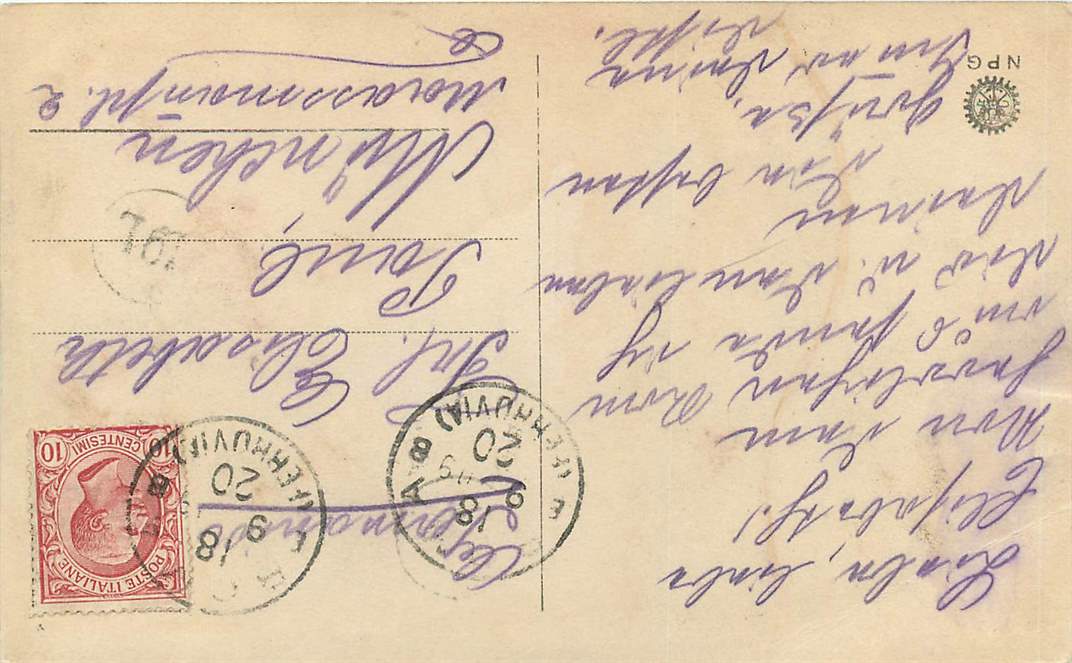 Liebe, liebe
Elisabeth!
Von dem
herrlichen Rom
aus sende ich
Dir u. den lieben
Deinen
die besten
Grüße.
Im̅er Deine
NPG
Germania
Frl. Elisabeth
Paul
München
Maassman̅pl. 2
POSTE ITALIANE
10 CENTESIMI 10
ROMA
18
9 09
20
(FERROVIA)
B
ROMA
18
9
20
(FERROVIA)
B
191